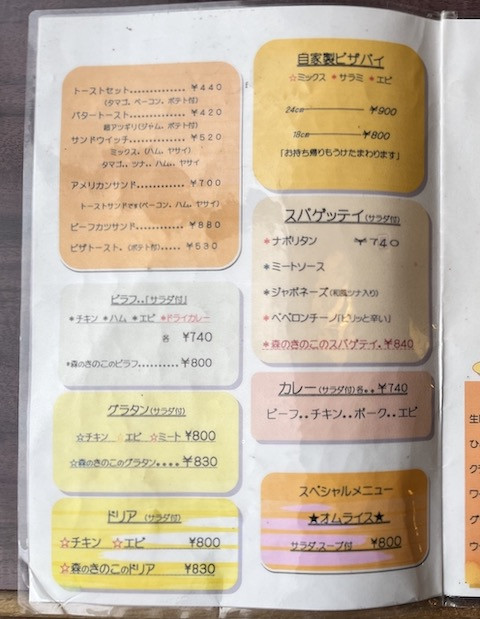 トーストセット............. ￥440
(タマゴ、ベーコン、ポテト付)
バタートースト............. ￥420
超アツギリ(ジャム、ポテト付)
サンドウイッチ............. ￥520
ミックス、(ハム、ヤサイ)
タマゴ、、ツナ、、ハム、ヤサイ
アメリカンサンド........... ￥700
トーストサンドです(ベーコン、ハム、ヤサイ)
ビーフカツサンド........... ￥880
ピザトースト、(ポテト付)..... ￥530
ピラフ..「サラダ付」
*チキン *ハム *エビ *ドライカレー
各 ￥740
*森のきのこのピラフ.......... ￥800
グラタン(サラダ付)
☆チキン ☆エビ ☆ミート ￥800
☆森のきのこのグラタン.... ￥830
ドリア (サラダ付)
☆チキン ☆エビ ￥800
☆森のきのこのドリア ￥830
自家製ピザパイ
☆ミックス *サラミ *エビ
24cm ￥900
18cm ￥800
「お持ち帰りもうけたまわります」
スパゲッテイ(サラダ付)
*ナポリタン ￥740
*ミートソース
*ジャポネーズ(和風ツナ入り)
*ペペロンチーノ(ピリッと辛い)
*森のきのこのスパゲテイ.￥840
カレー(サラダ付)各..￥740
ビーフ..チキン..ポーク..エビ
スペシャルメニュー
★オムライス★
サラダ,スープ付 ￥800